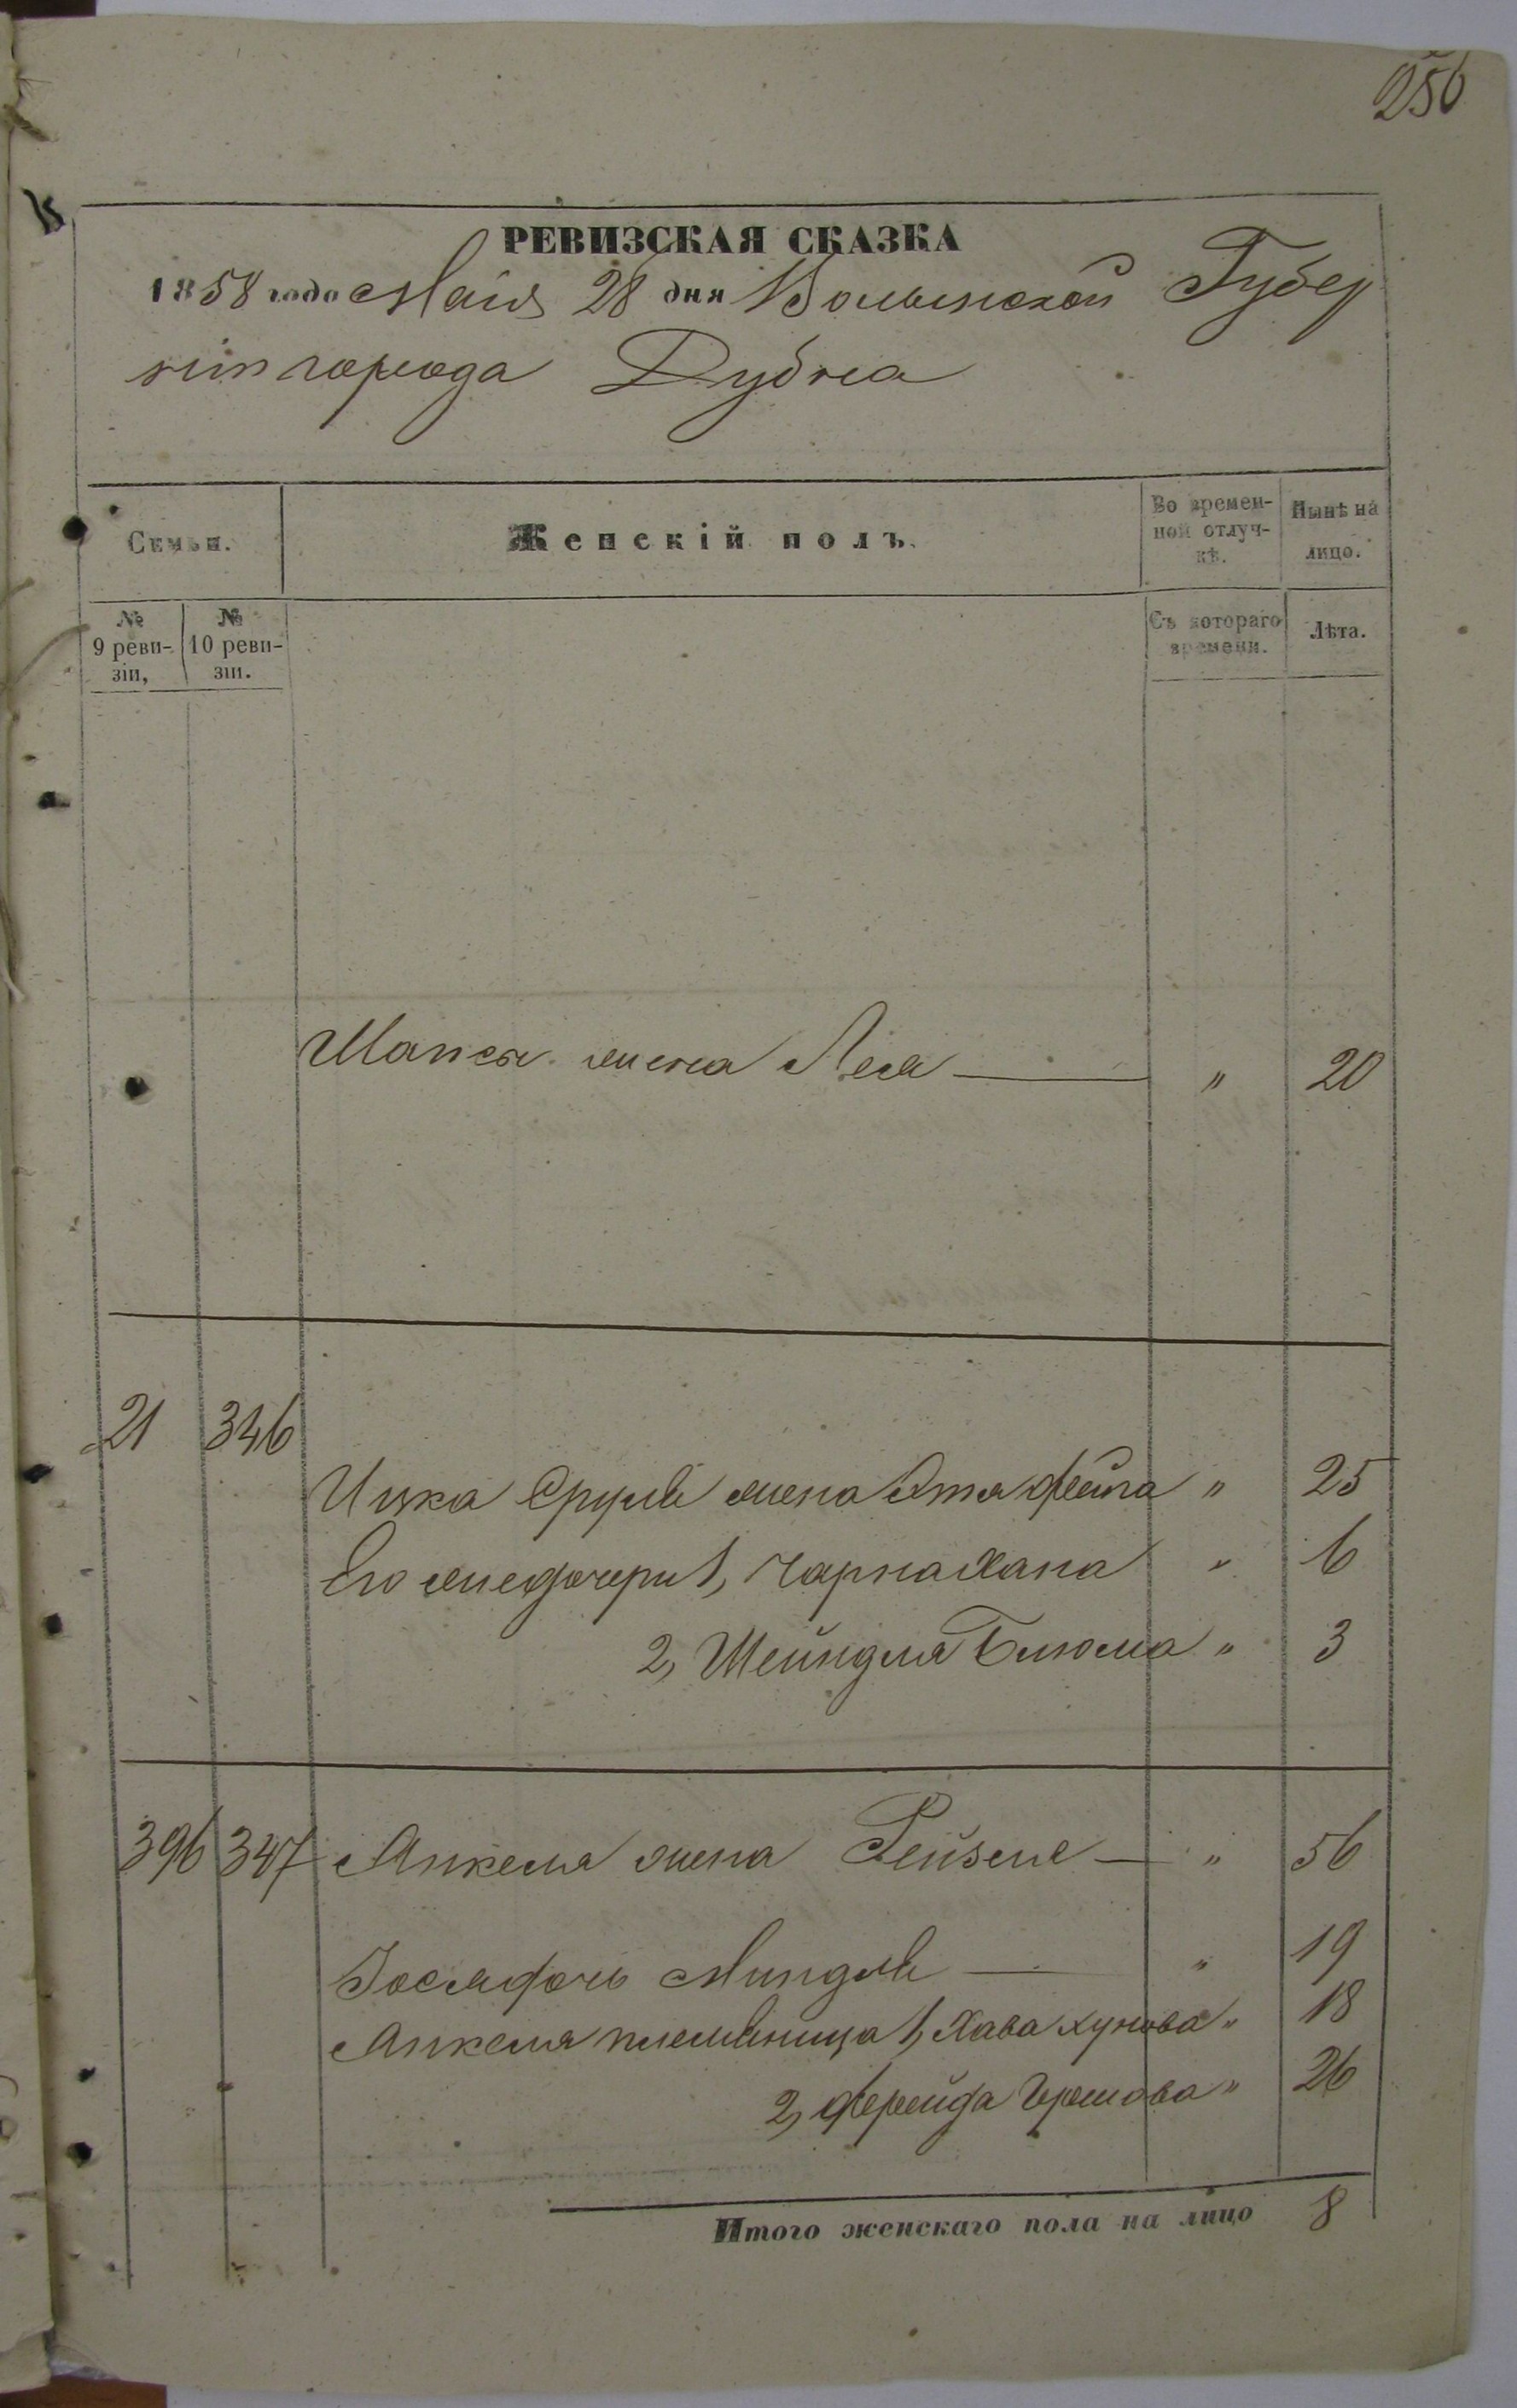 256
РЕВИЗСКАЯ СКАЗКА
1858 года Маія 28 дня Волынской Губер
ніи города Дубна
Семьи.
Женскій полъ.
Во времен-
ной отлуч-
кѣ.
Нынѣ на
лицо.
№
9 реви-
зіи,
№
10 реви-
зіи.
Съ котораго
времени.
Лѣта.
Шапсы жена Лея — " 20
21 346
Ицка Сруля жена Этя Фейга " 25
Его же дочери 1, Чарна Хана " 6
2, Шейндля Блюма " 3
396 347 Анкеля жена Рейзля — " 56
Іося дочь Миндля — " 19
Анкеля племяница 1, Хава Хунова " 18
2, Фрейда " 26
Итого женскаго пола на лицо 8